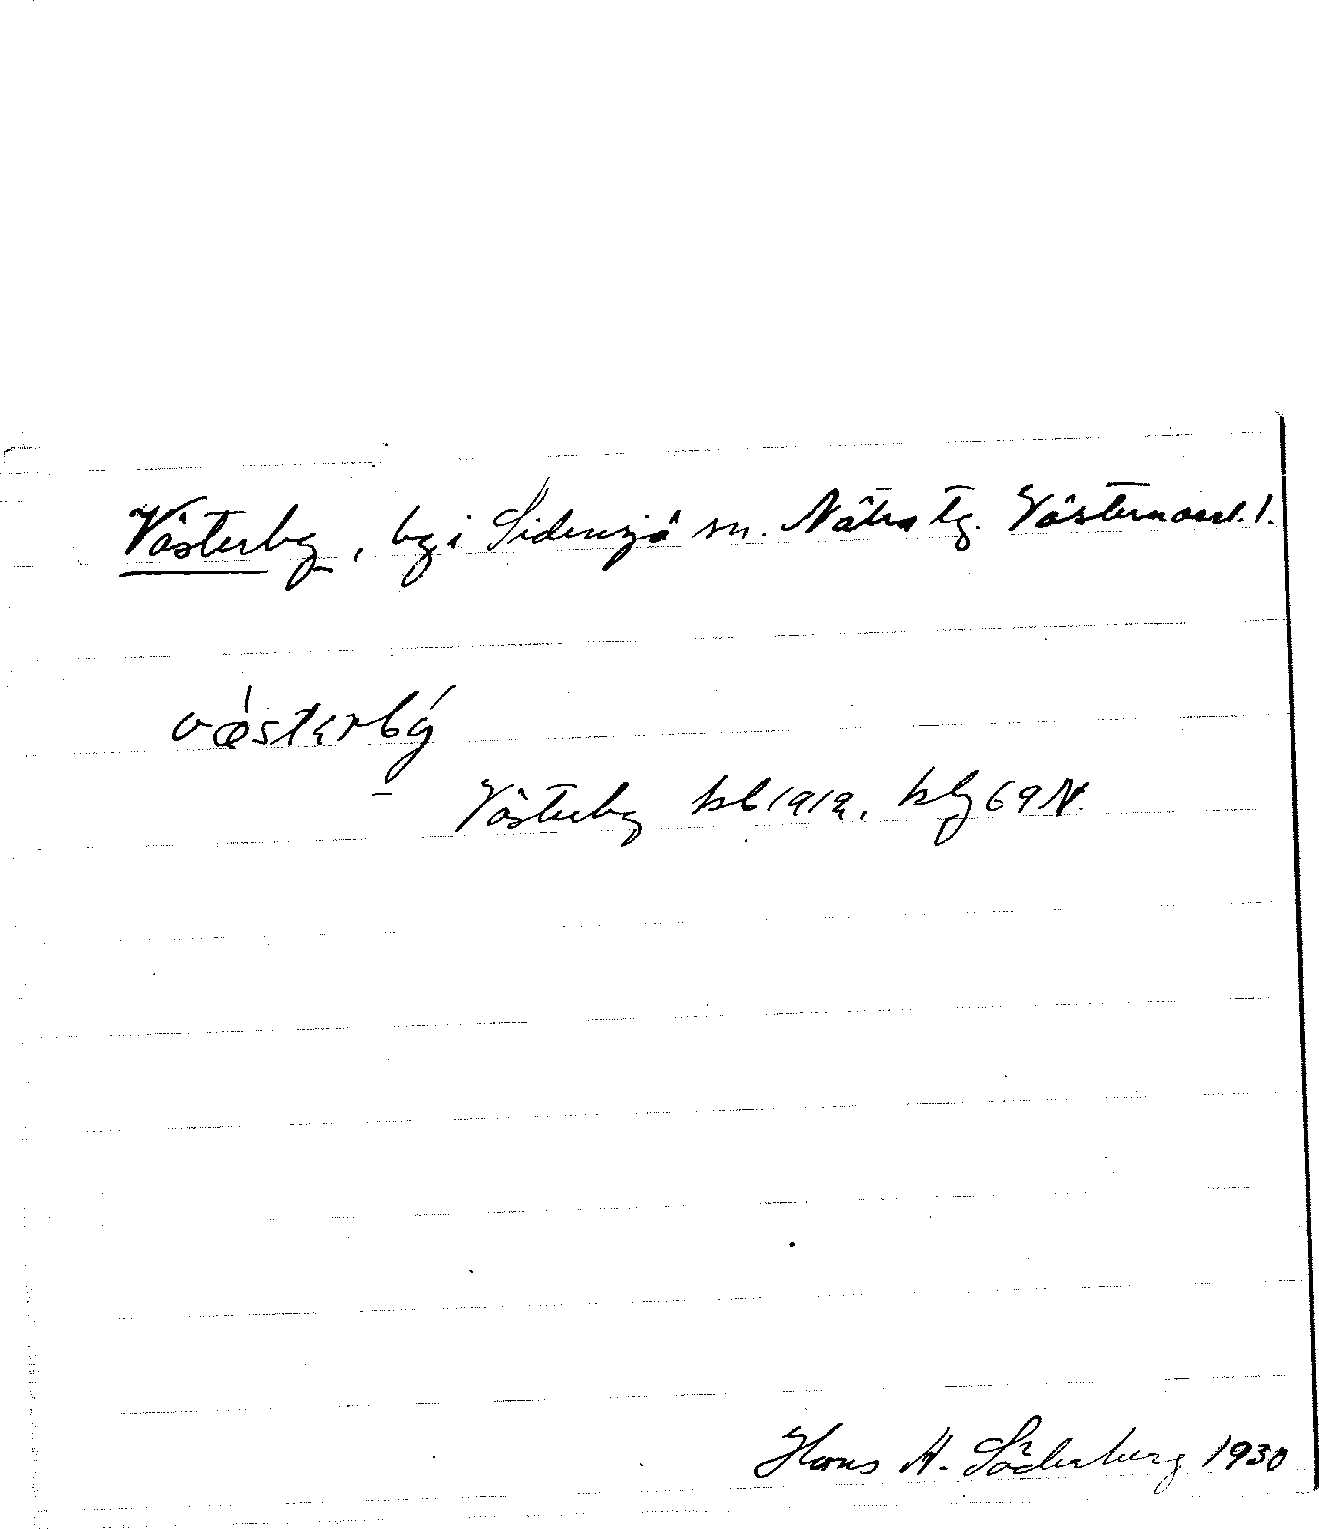 Västerby, by i Sidensjö sn. Nätra tg. Västernorrl. l.
væ̀stərbý
Västerby kb 1919, kbg 69 N.
Hans A. Söderberg 1930